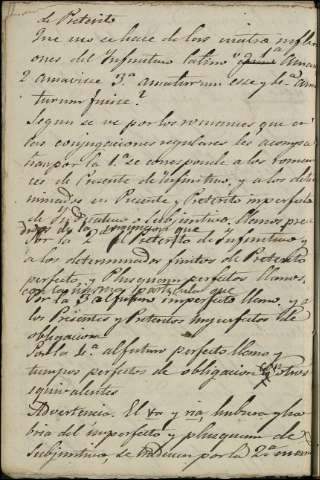 de Preterito
Que uso se hace de las cuatro inflexi
ones del Infinitivo latino 1ª Amare
2 amavisse 3ª amaturum esse y 4ª ama
turum fuisse?
Segun se ve por los romances que en
las conjugaciones regulares les acompa
ñan por la 1ª se corresponde a los roman
ces de Presente de Infinitivo, y a los deter
minados en Presente y Preterito imperfecto
de Indicativo o Subjuntivo, llamos pre
que y
Por la 2ª al Preterito de Infinitivo y
a los determinados finitos de Preterito
perfecto, y Plusquamperfecto llamos,
con los mismos y particula que
Por la 3ª al futuro imperfecto llano, y a
los Presentes y Preteritos Imperfectos de
obligacion
Por la 4ª al futuro perfecto llano y
tiempos perfectos de obligacion y otros
equivalentes
Advertencia. El ra y ria, hubiera y ha
bria del imperfecto y plusquam de
Subjuntivo, se traducen por la 2ª